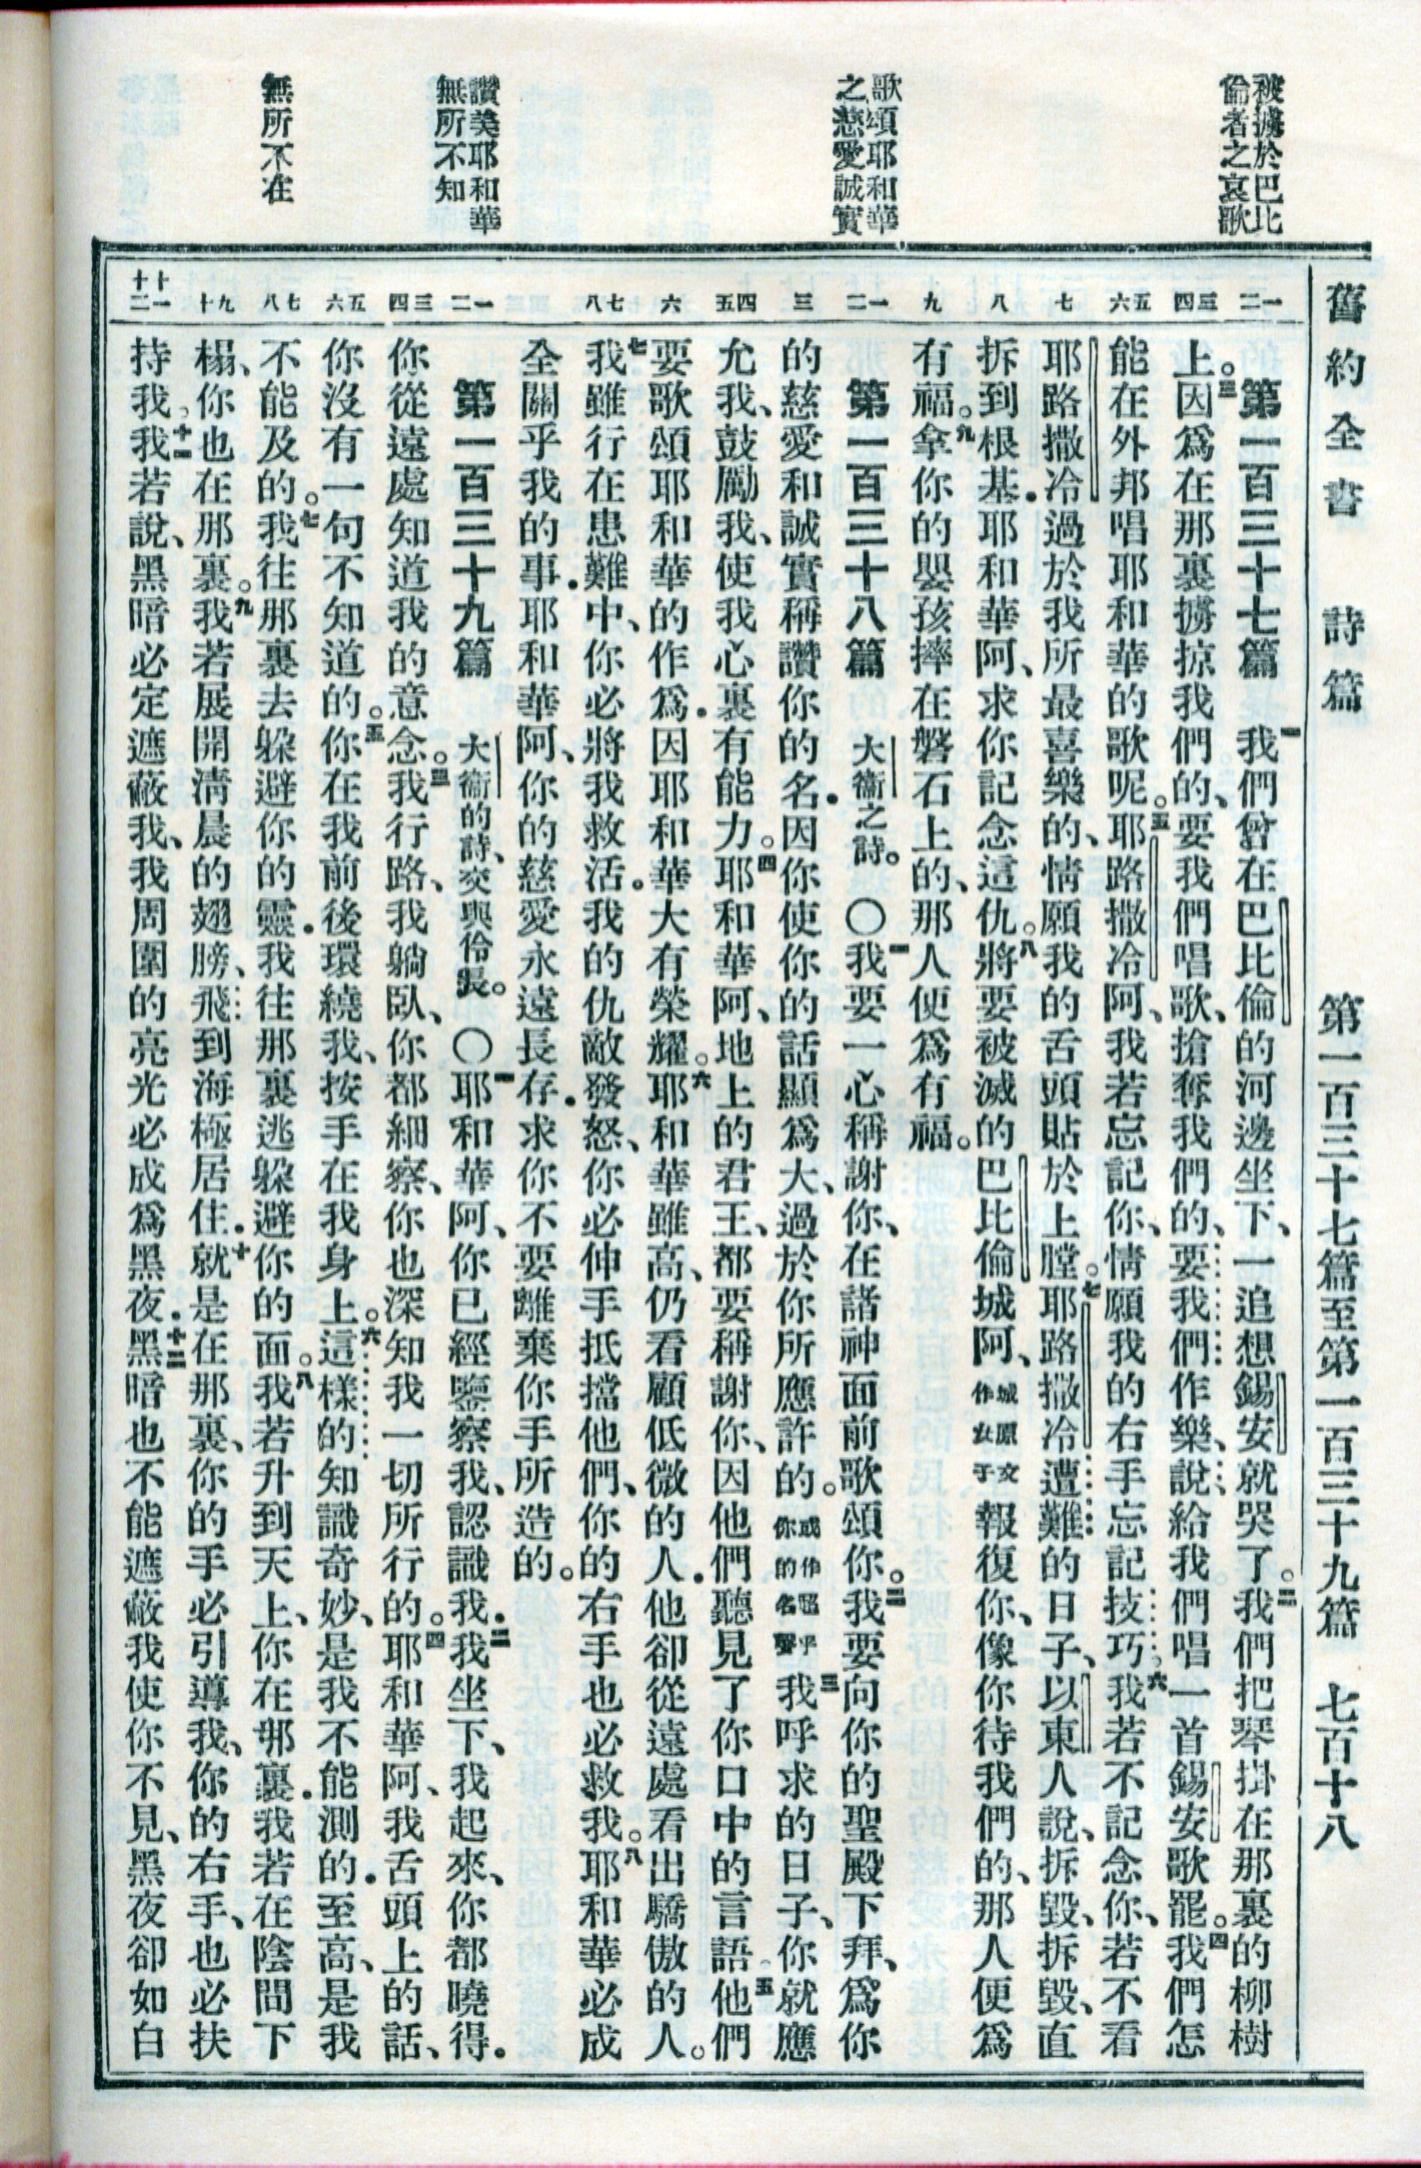 舊約全書　詩篇　第一百三十七篇至第一百三十九篇　七百十八
被擄於巴比
倫者之哀歌
歌頌耶和華
之慈愛誠實
讚美耶和華
無所不知
無所不在
一 二 三 四 五 六 七 八 九 一 二 三 四 五 六 七 八 一 二 三 四 五 六 七 八 九 十 十一 十二
第一百三十七篇　一我們曾在巴比倫的河邊坐下、一追想錫安就哭了。二我們把琴掛在那裏的柳樹
上。三因爲在那裏擄掠我們的、要我們唱歌、搶奪我們的、要我們作樂、說給我們唱一首錫安歌罷。四我們怎
能在外邦唱耶和華的歌呢。五耶路撒冷阿、我若忘記你、情願我的右手忘記技巧。六我若不記念你、若不看
耶路撒冷過於我所最喜樂的、情願我的舌頭貼於上膛。七耶路撒冷遭難的日子、以東人說、拆毀、拆毀、直
拆到根基．耶和華阿、求你記念這仇。八將要被滅的巴比倫城阿、城原文作女子報復你、像你待我們的、那人便爲
有福。九拿你的嬰孩摔在磐石上的、那人便爲有福。
第一百三十八篇　大衞之詩。○一我要一心稱謝你、在諸神面前歌頌你。二我要向你的聖殿下拜、爲你
的慈愛和誠實稱讚你的名．因你使你的話顯爲大、過於你所應許的。或作超乎你的名聲三我呼求的日子、你就應
允我、鼓勵我、使我心裏有能力。四耶和華阿、地上的君王、都要稱謝你、因他們聽見了你口中的言語。五他們
要歌頌耶和華的作爲．因耶和華大有榮耀。六耶和華雖高、仍看顧低微的人．他卻從遠處看出驕傲的人。
七我雖行在患難中、你必將我救活。我的仇敵發怒、你必伸手抵擋他們、你的右手也必救我。八耶和華必成
全關乎我的事．耶和華阿、你的慈愛永遠長存．求你不要離棄你手所造的。
第一百三十九篇　大衞的詩、交與伶長。○一耶和華阿、你已經鑒察我、認識我．二我坐下、我起來、你都曉得．
你從遠處知道我的意念。三我行路、我躺臥、你都細察、你也深知我一切所行的。四耶和華阿、我舌頭上的話、
你沒有一句不知道的。五你在我前後環繞我、按手在我身上。六這樣的知識奇妙、是我不能測的．至高、是我
不能及的。七我往那裏去躲避你的靈．我往那裏逃躲避你的面。八我若升到天上、你在那裏．我若在陰間下
榻、你也在那裏。九我若展開淸晨的翅膀、飛到海極居住．十就是在那裏、你的手必引導我、你的右手、也必扶
持我。十一我若說、黑暗必定遮蔽我、我周圍的亮光必成爲黑夜．十二黑暗也不能遮蔽我使你不見、黑夜卻如白